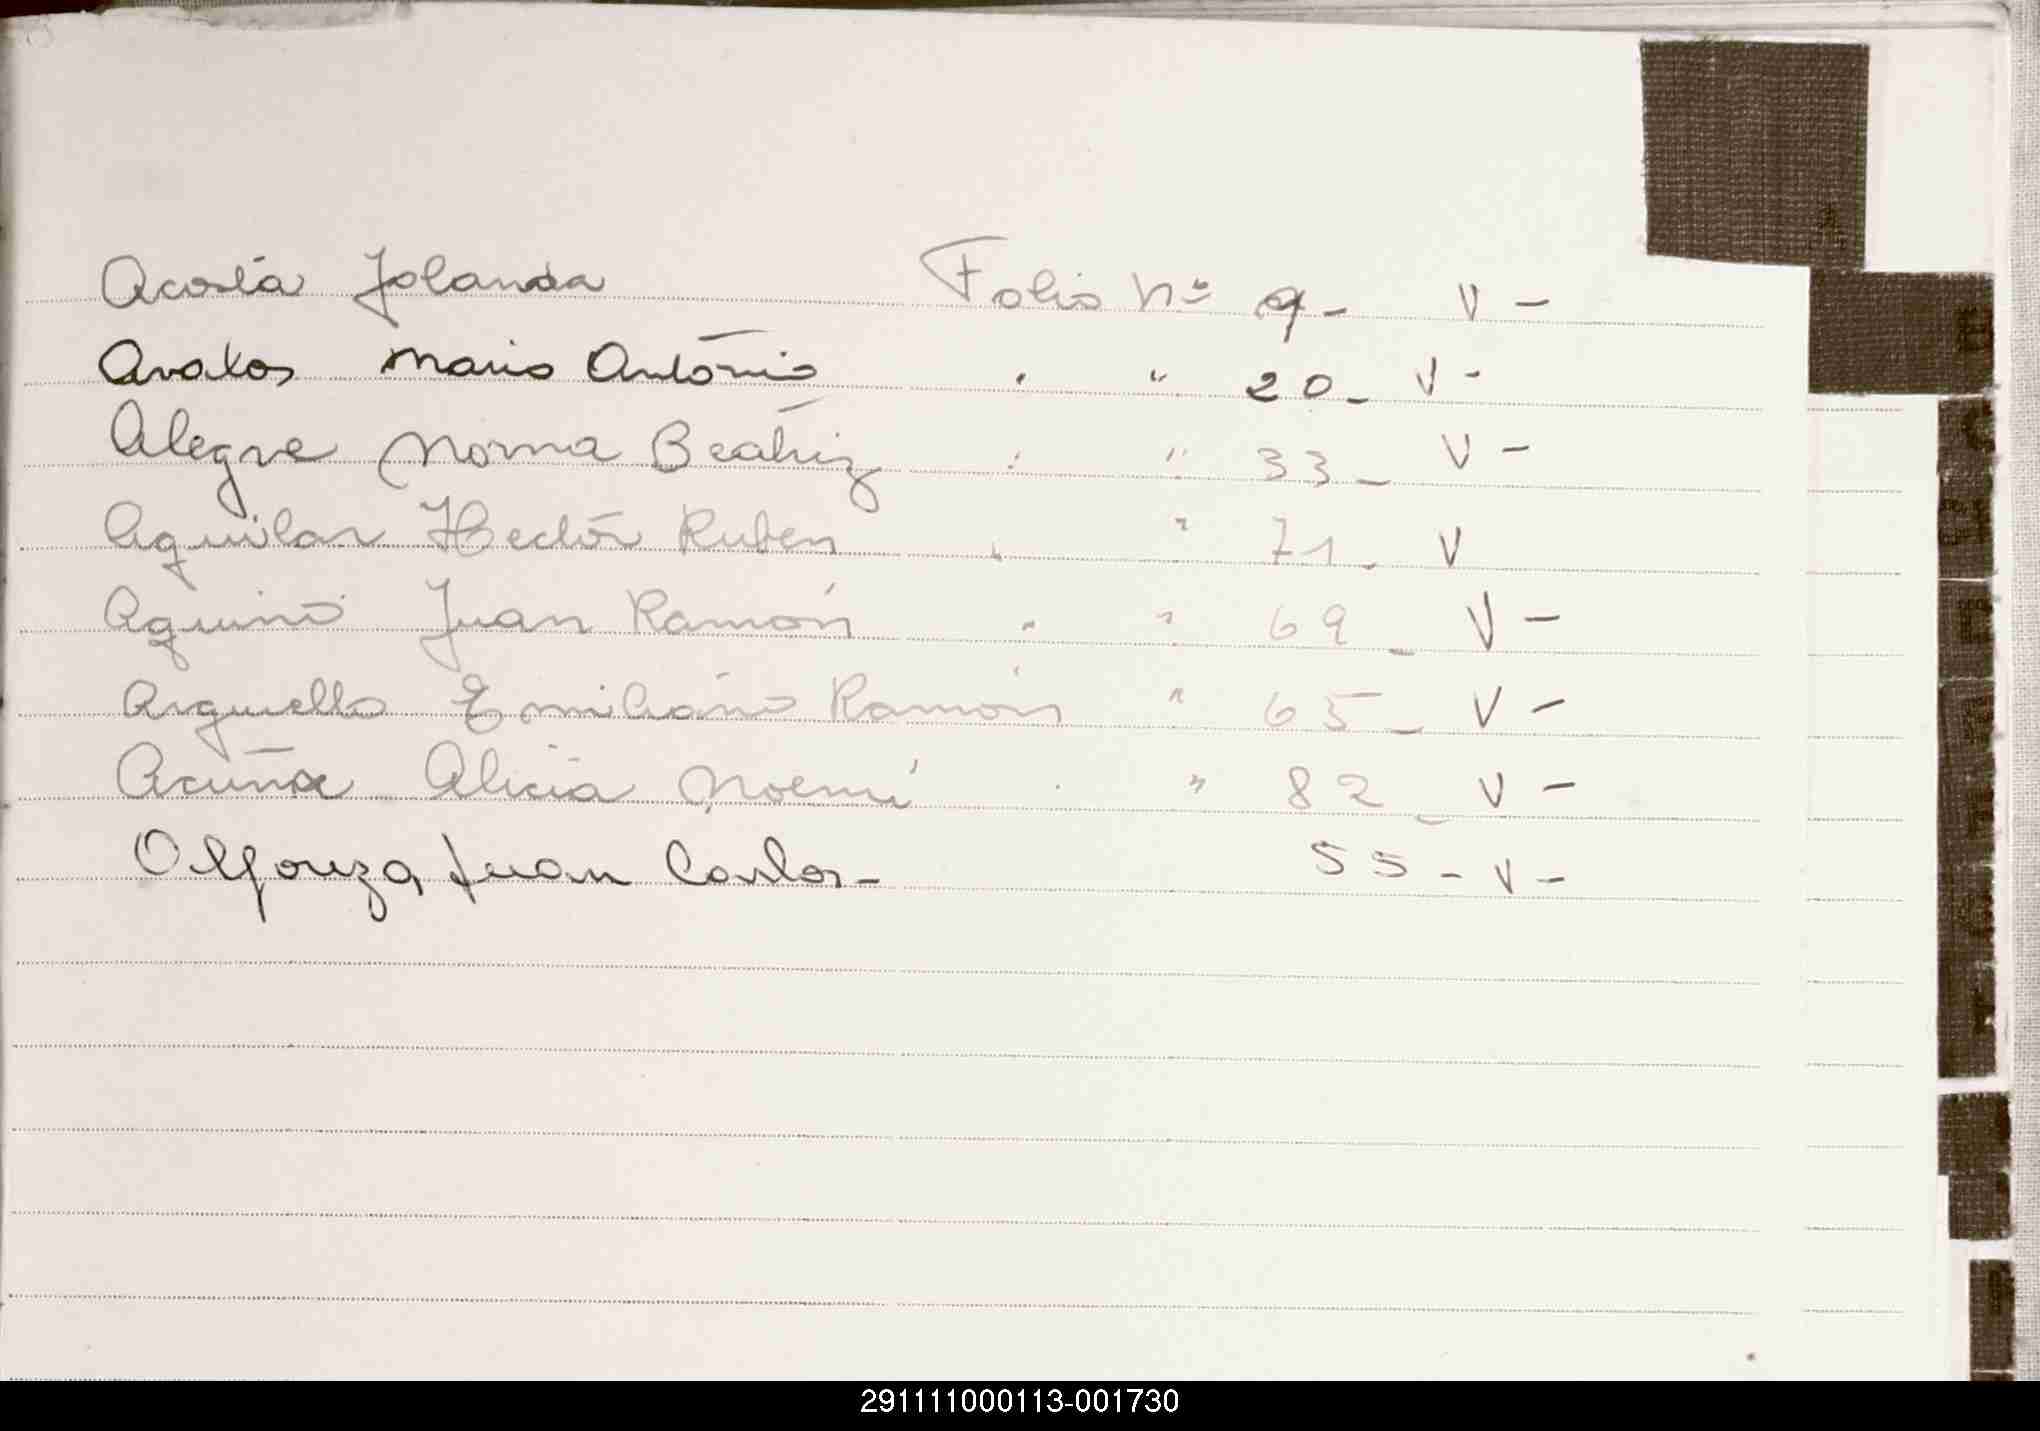 Acosta Jolanda Folio Nº 9 - V -
Avalos Mario Antonio " " 20 - V -
Alegre Norma Beatriz " " 33 - V -
Aguilar Hector Ruben " " 71 - V
Aquino Juan Ramón " " 69 - V -
Arguello Emiliano Ramón " 65 - V -
Acuña Alicia Noemi " " 82 - V -
Juan Carlos - 55 - V -
291111000113-001730